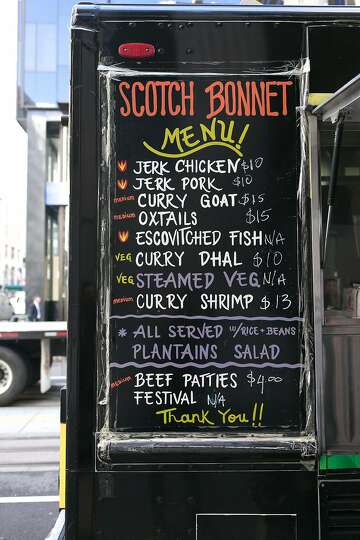 SCOTCH BONNET
MENU!
JERK CHICKEN $10
JERK PORK $10
medium CURRY GOAT $15
medium OXTAILS $15
ESCOVITCHED FISH N/A
VEG CURRY DHAL $10
VEG STEAMED VEG N/A
medium CURRY SHRIMP $13
* ALL SERVED W/RICE + BEANS
PLANTAINS SALAD
medium BEEF PATTIES $4.00
FESTIVAL N/A
Thank You!!